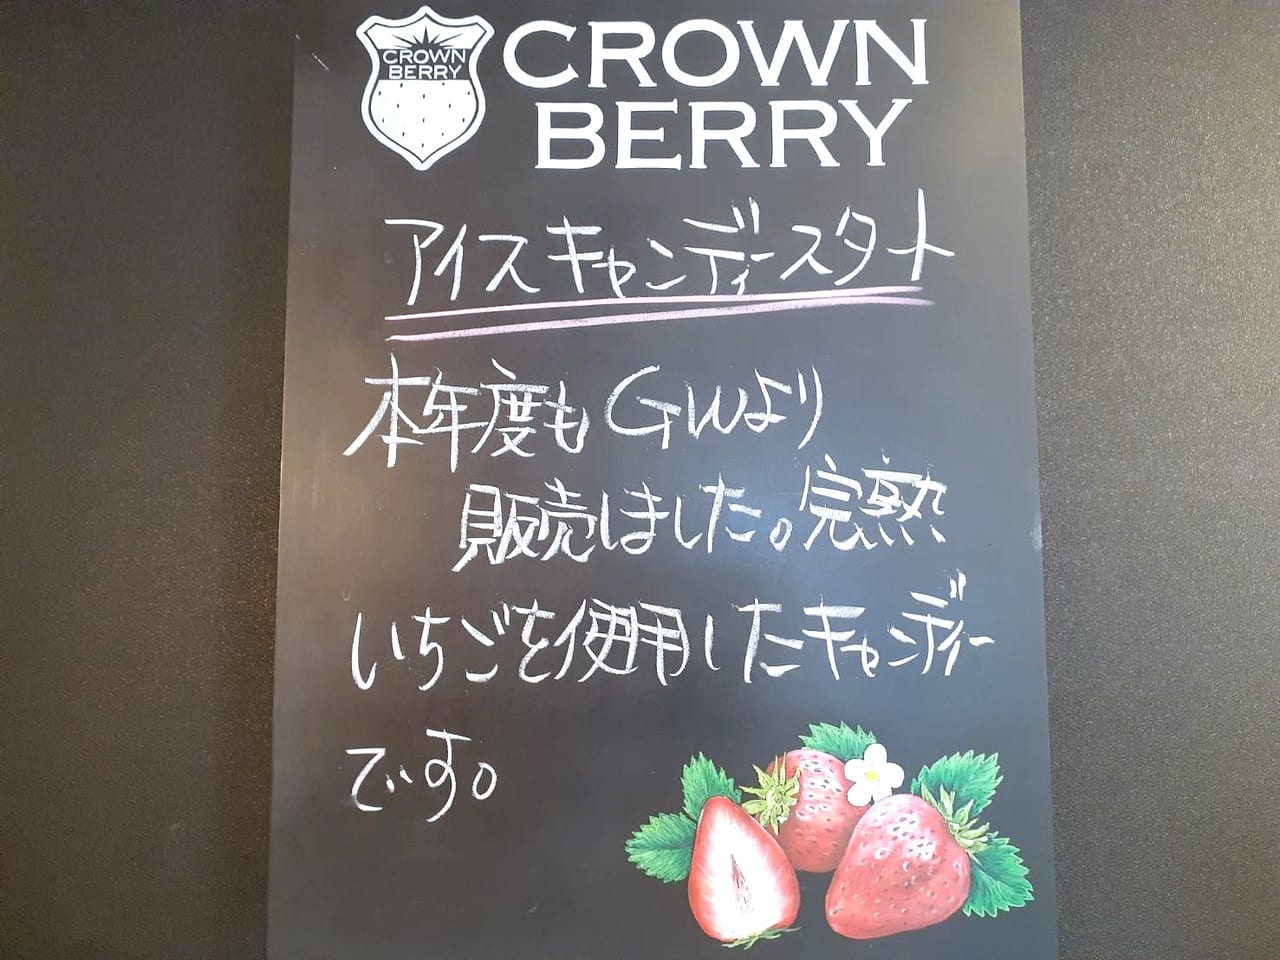 CROWN
BERRY
CROWN
BERRY
アイスキャンディースタート
本年度もGWより
販売しました。完熟
いちごを使用したキャンディー
です。